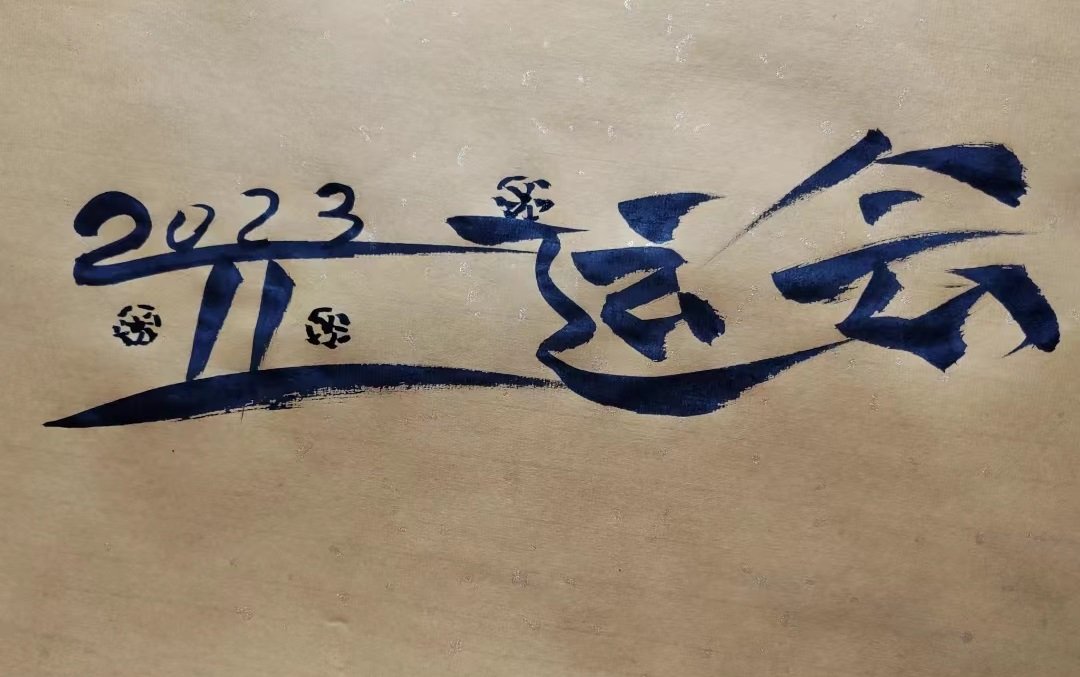 2023亚运会